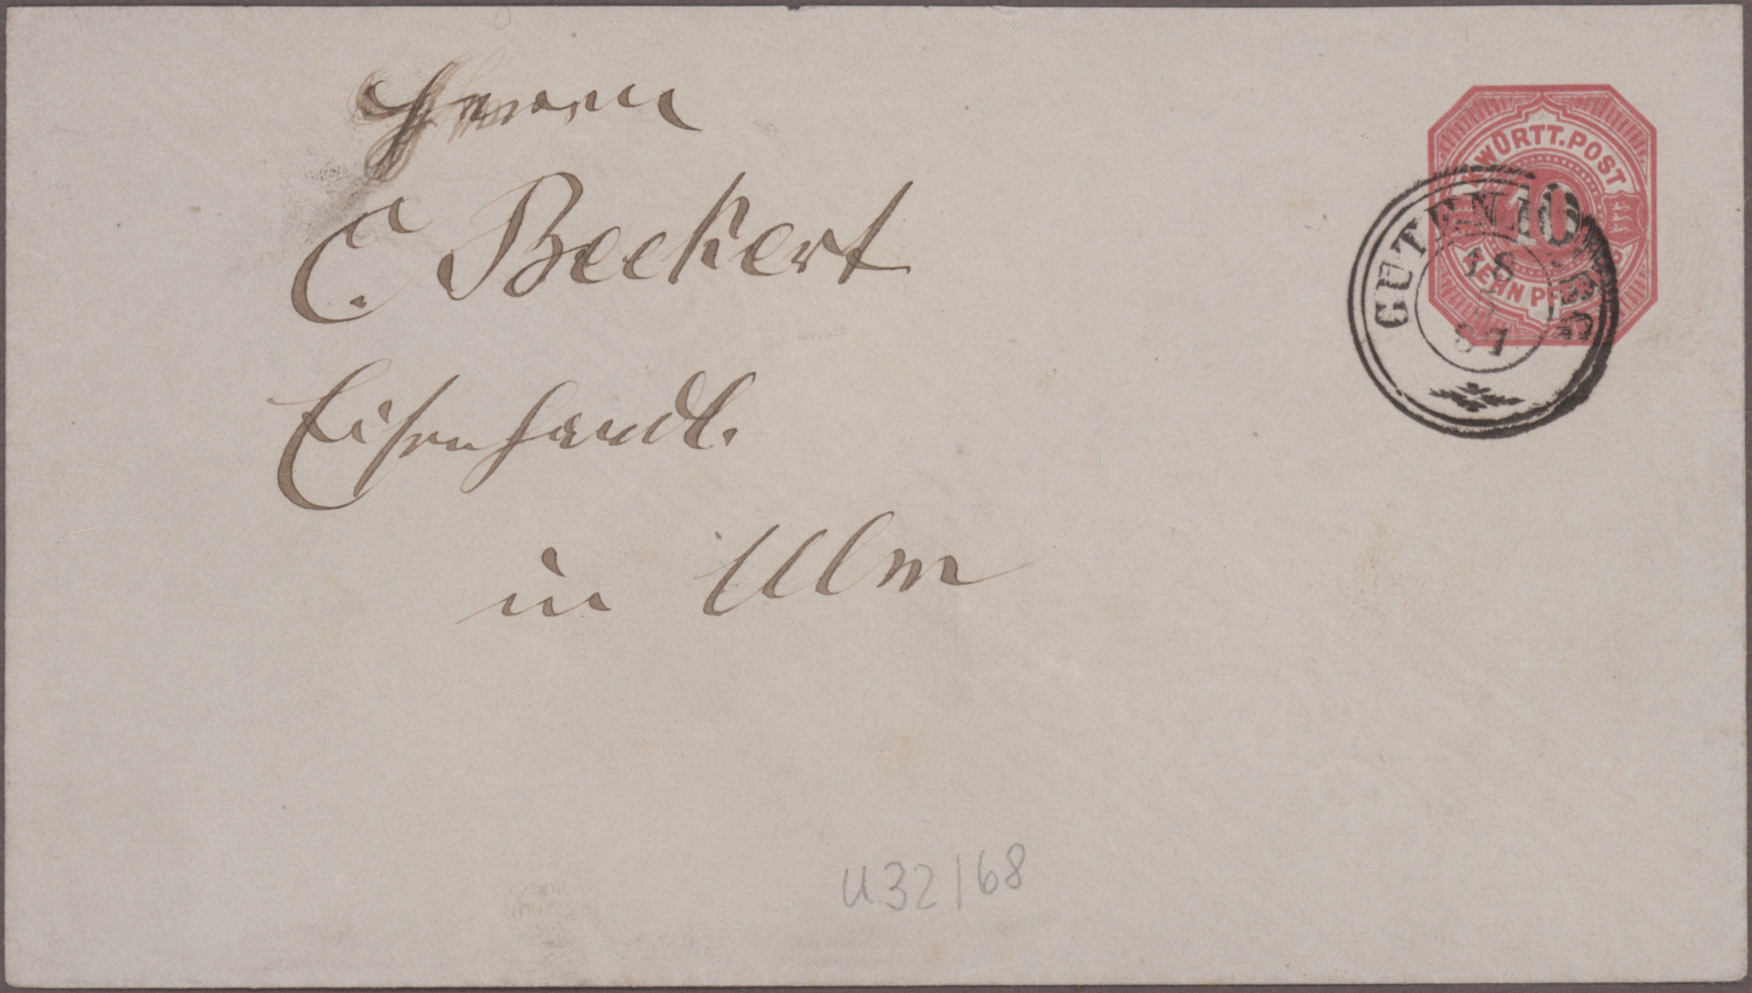 Herrn
C. Beckert
Eisenhandl.
in Ulm
WÜRTT. POST
10
ZEHN PFENNIG
GUTENBERG
18
87
U32/68